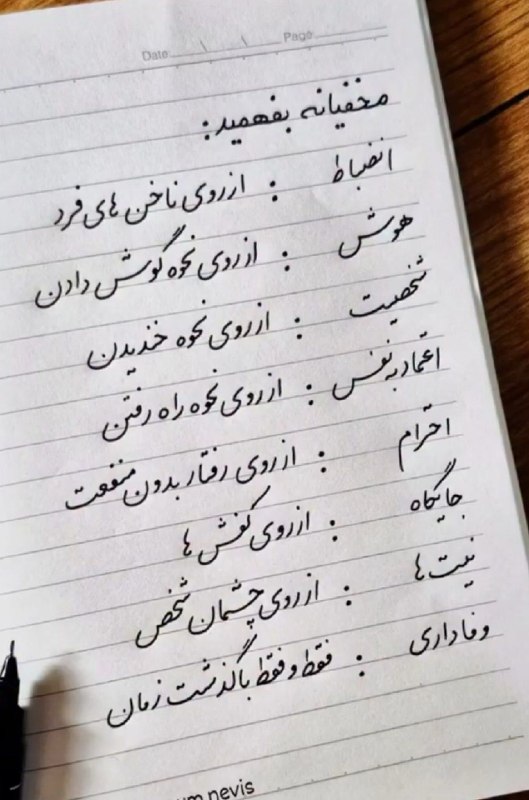 Date Page
مخفیانه بفهمید:
انضباط : از روی ناخن های فرد
هوش : از روی نحوه گوش دادن
شخصیت : از روی نحوه خندیدن
اعتماد به نفس : از روی نحوه راه رفتن
احترام : از روی رفتار بدون منفعت
جایگاه : از روی کفش ها
نیت ها : از روی چشمان شخص
وفاداری : فقط و فقط با گذشت زمان
nevis